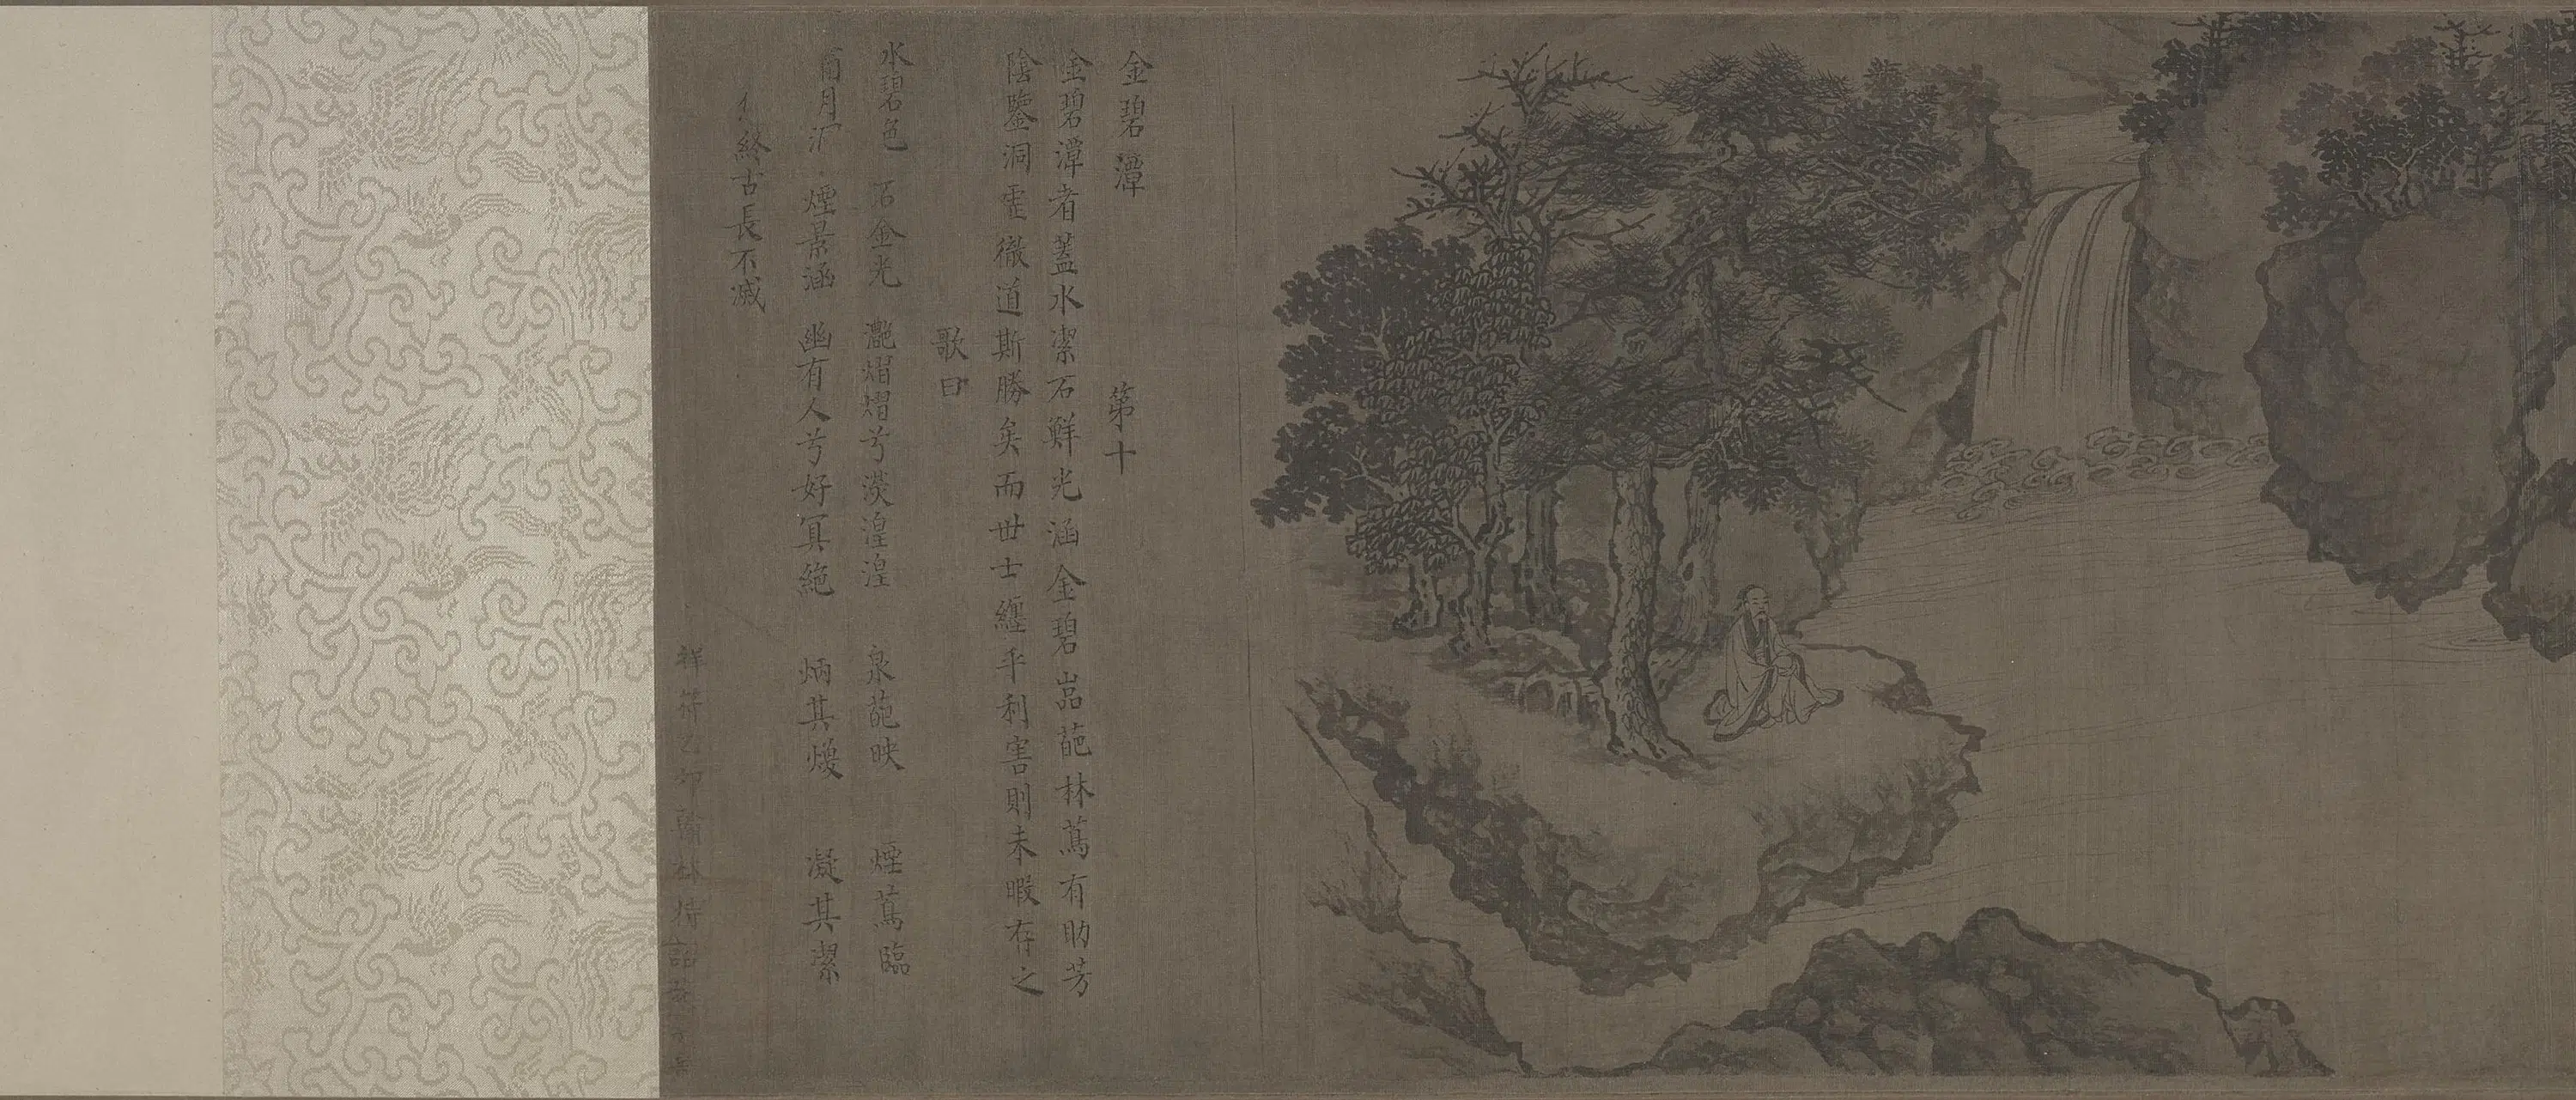 金碧潭 第十
金碧潭者蓋水潔石鮮光涵金碧嵓葩林蔦有助芳
陰鑒洞徹道斯勝矣而世士纏乎利害則未暇存之
歌曰
水碧色 石金光 灔熠熠兮淡湟湟 泉葩映 煙蔦臨
月 煙景涵 幽有人兮好冥絶 炳其煥 凝其潔
終古長不滅
祥符乙卯翰林待詔